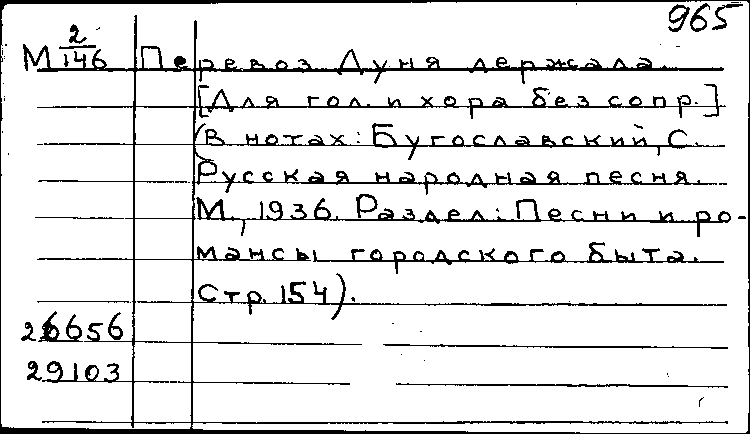 965
М 2/146 Перевоз Дуня держала.
[Для гол. и хора без сопр.]
(В нотах: Бугославский, С.
Русская народная песня.
М., 1936. Раздел: Песни и ро-
мансы городского быта.
Стр. 154).
26656
29103